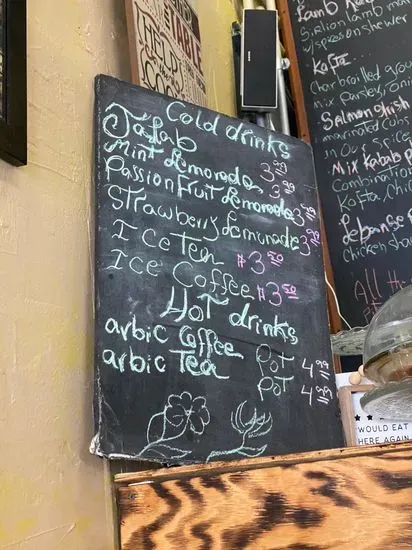 TABLE
HELP
Cold drinks
Jalab 3.99
Mint Lemonade 3.99
Passion Fruit Lemonade 3.99
Strawberry Lemonade 3.99
Ice Tea $3.50
Ice Coffee $3.50
Hot drinks
arbic Coffee Pot 4.99
arbic Tea Pot 4.99
Lamb
Sirlion lamb
skewer
Kafta
Char broiled
mix Parsley, oni
Salmon shish
marinated Cubs
in our spice
Mix Kabab
Combination
Kafta, Chi
Lebanese
chicken
All
WOULD EAT
HERE AGAIN